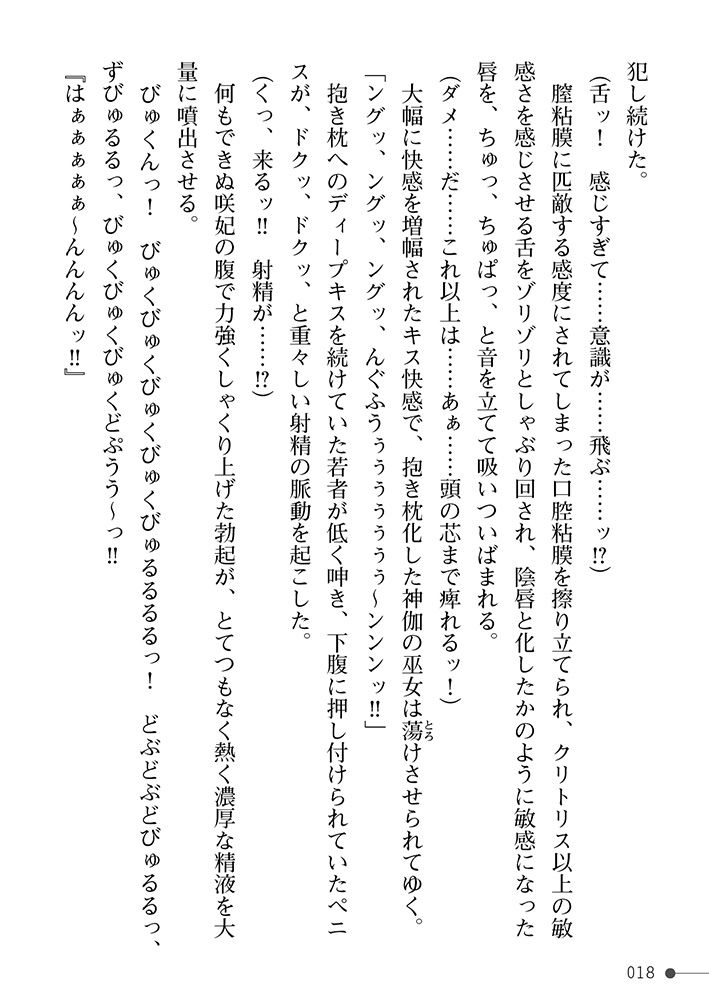 犯し続けた。
（舌ッ！　感じすぎて……意識が……飛ぶ……ッ!?）
膣粘膜に匹敵する感度にされてしまった口腔粘膜を擦り立てられ、クリトリス以上の敏
感さを感じさせる舌をゾリゾリとしゃぶり回され、陰唇と化したかのように敏感になった
唇を、ちゅっ、ちゅぱっ、と音を立てて吸いついばまれる。
（ダメ……だ……これ以上は……あぁ……頭の芯まで痺れるッ！）
大幅に快感を増幅されたキス快感で、抱き枕化した神伽の巫女は蕩とろけさせられてゆく。
「ングッ、ングッ、ングッ、んぐふうぅぅぅぅぅぅ～ンンンッ!!」
抱き枕へのディープキスを続けていた若者が低く呻き、下腹に押し付けられていたペニ
スが、ドクッ、ドクッ、と重々しい射精の脈動を起こした。
（くっ、来るッ!!　射精が……!?）
何もできぬ咲妃の腹で力強くしゃくり上げた勃起が、とてつもなく熱く濃厚な精液を大
量に噴出させる。
びゅくんっ！　びゅくびゅくびゅくびゅくびゅるるるっ！　どぶどぶどびゅるるっ、
ずびゅるるっ、びゅくびゅくびゅくどぷうう～っ!!
『はぁぁぁぁぁ～んんんんッ!!』
018